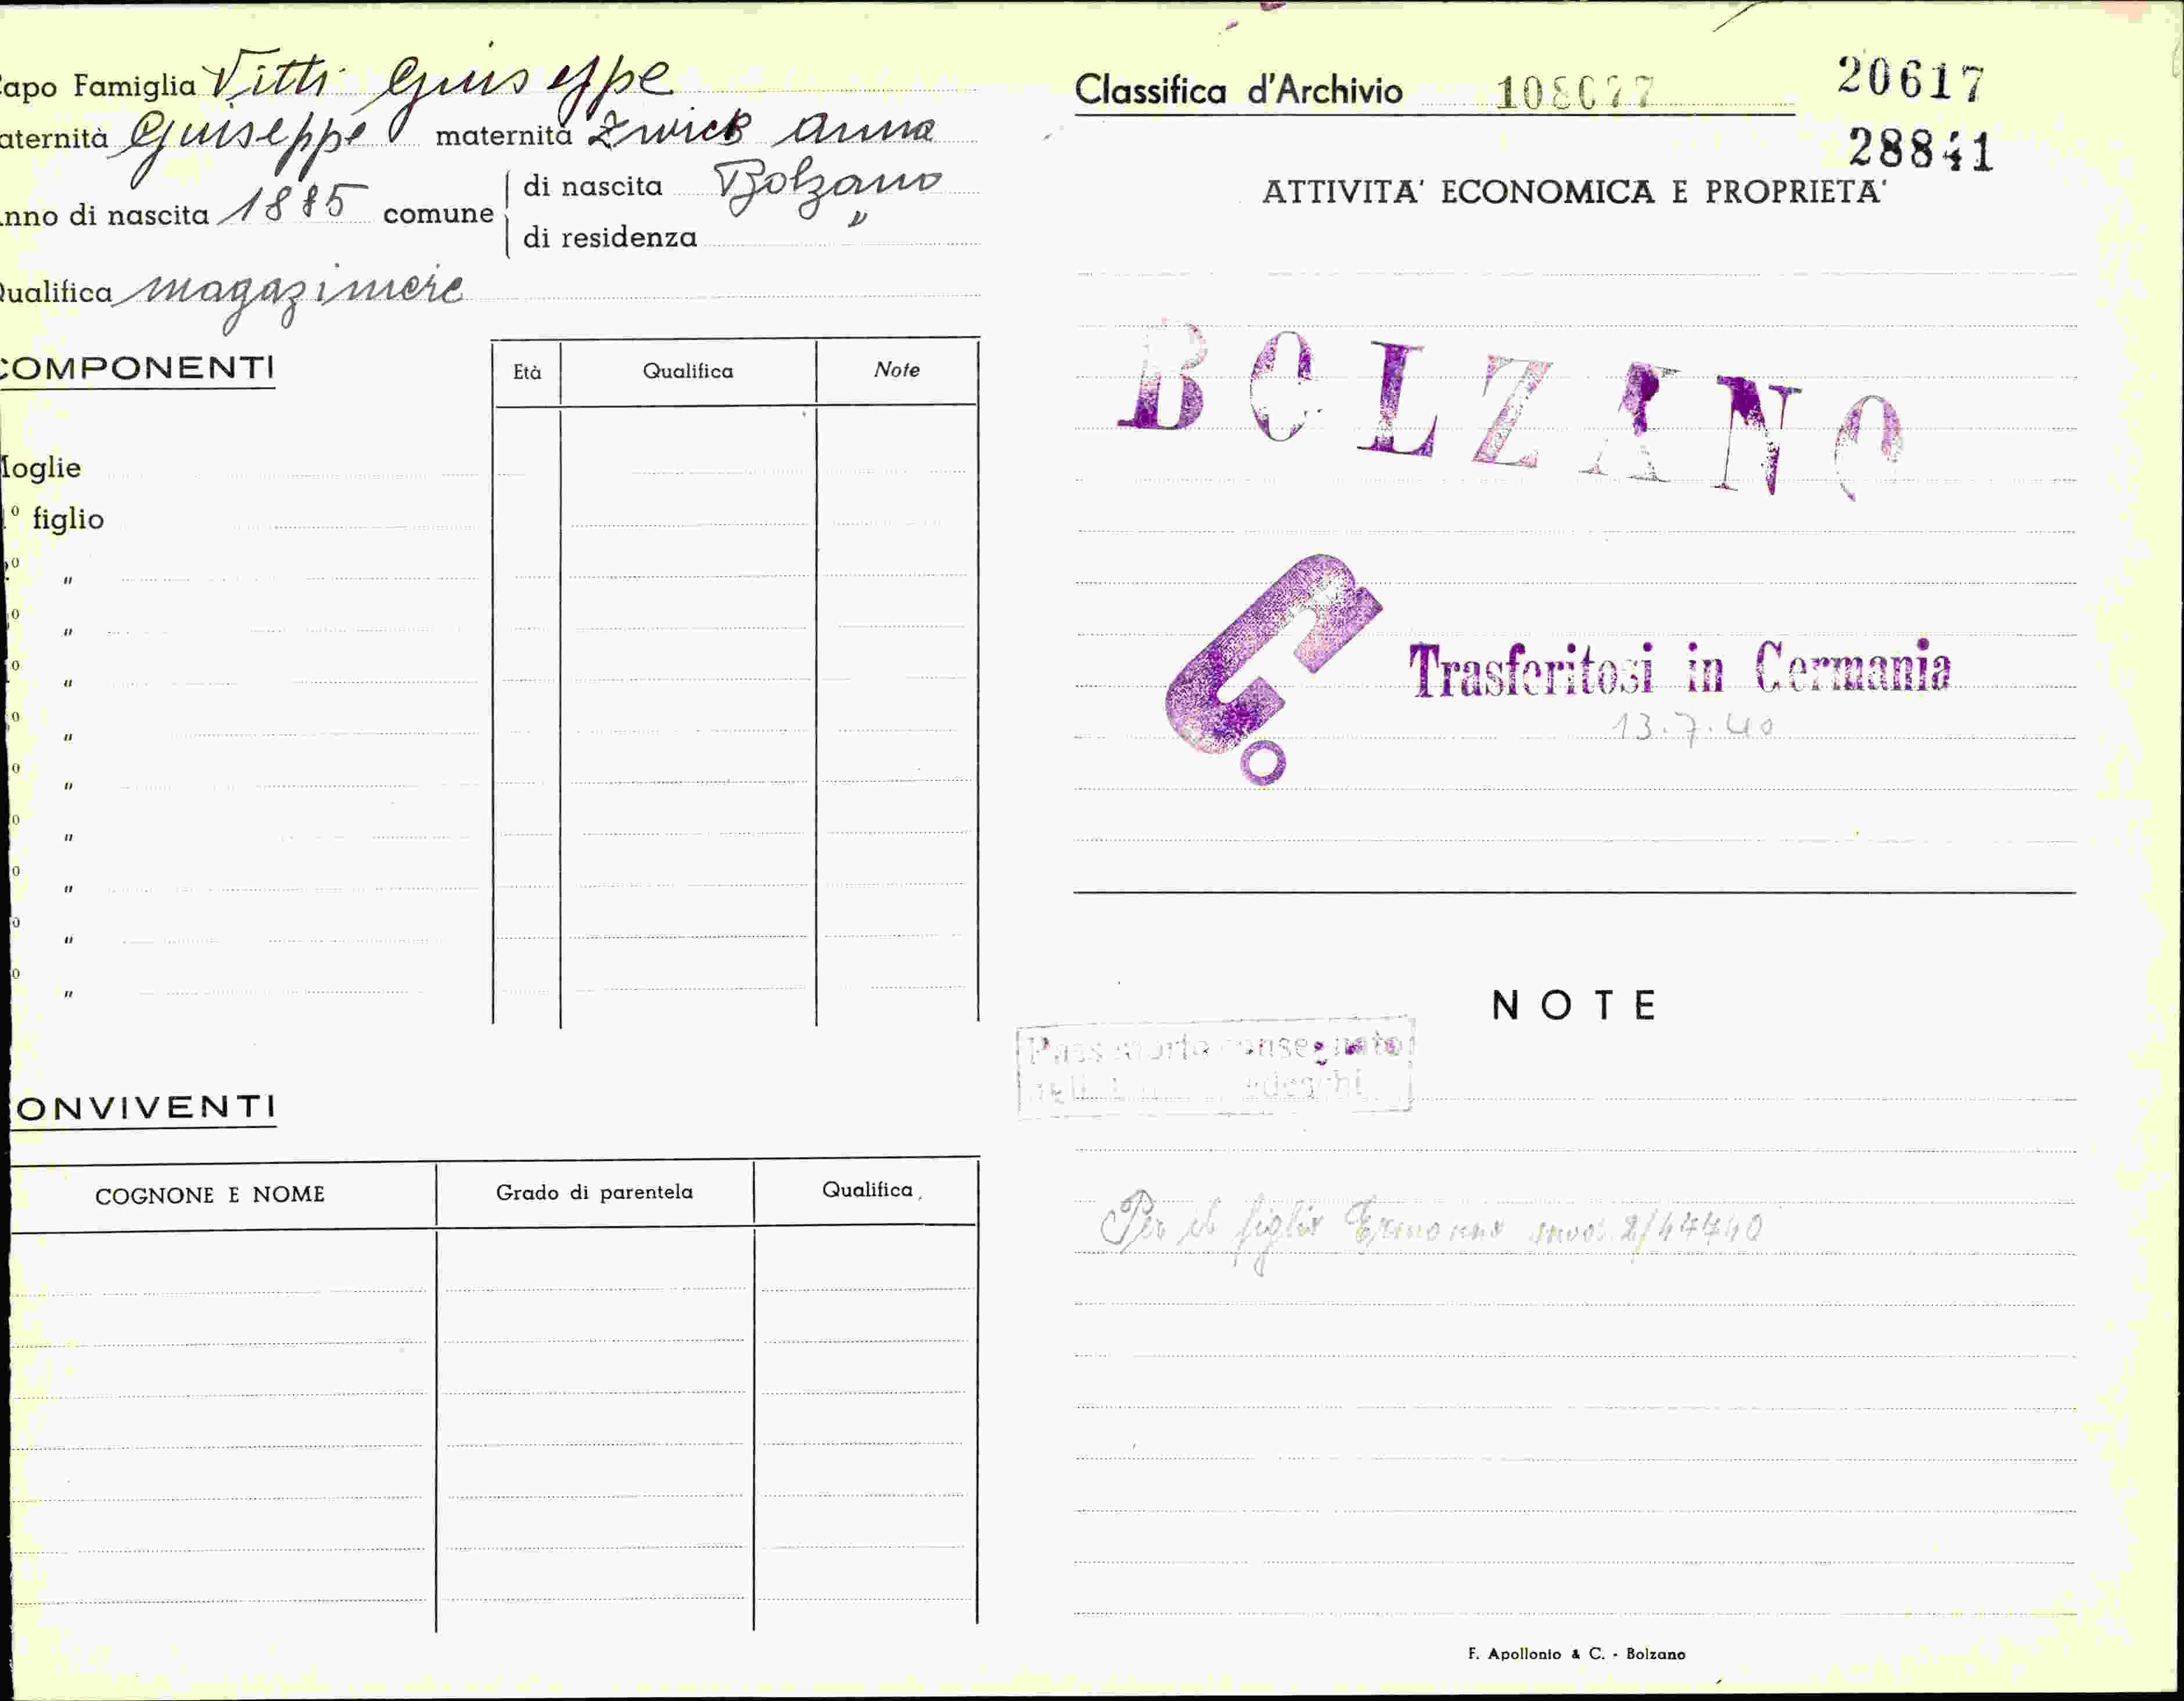 apo Famiglia Vitti Giuseppe
aternità Giuseppe maternità Zwick Anna
nno di nascita 1885 comune di nascita Bolzano
di residenza "
ualifica magaziniere
COMPONENTI
Età Qualifica Note
oglie
° figlio
° "
° "
° "
° "
° "
° "
° "
° "
° "
ONVIVENTI
COGNONE E NOME Grado di parentela Qualifica
Classifica d'Archivio 108677 20617
28841
ATTIVITA' ECONOMICA E PROPRIETA'
BOLZANO
G.
Trasferitosi in Germania
13.7.40
NOTE
Passaporto consegnato
tedeschi
Per il figlio 2/47440
F. Apollonio & C. - Bolzano